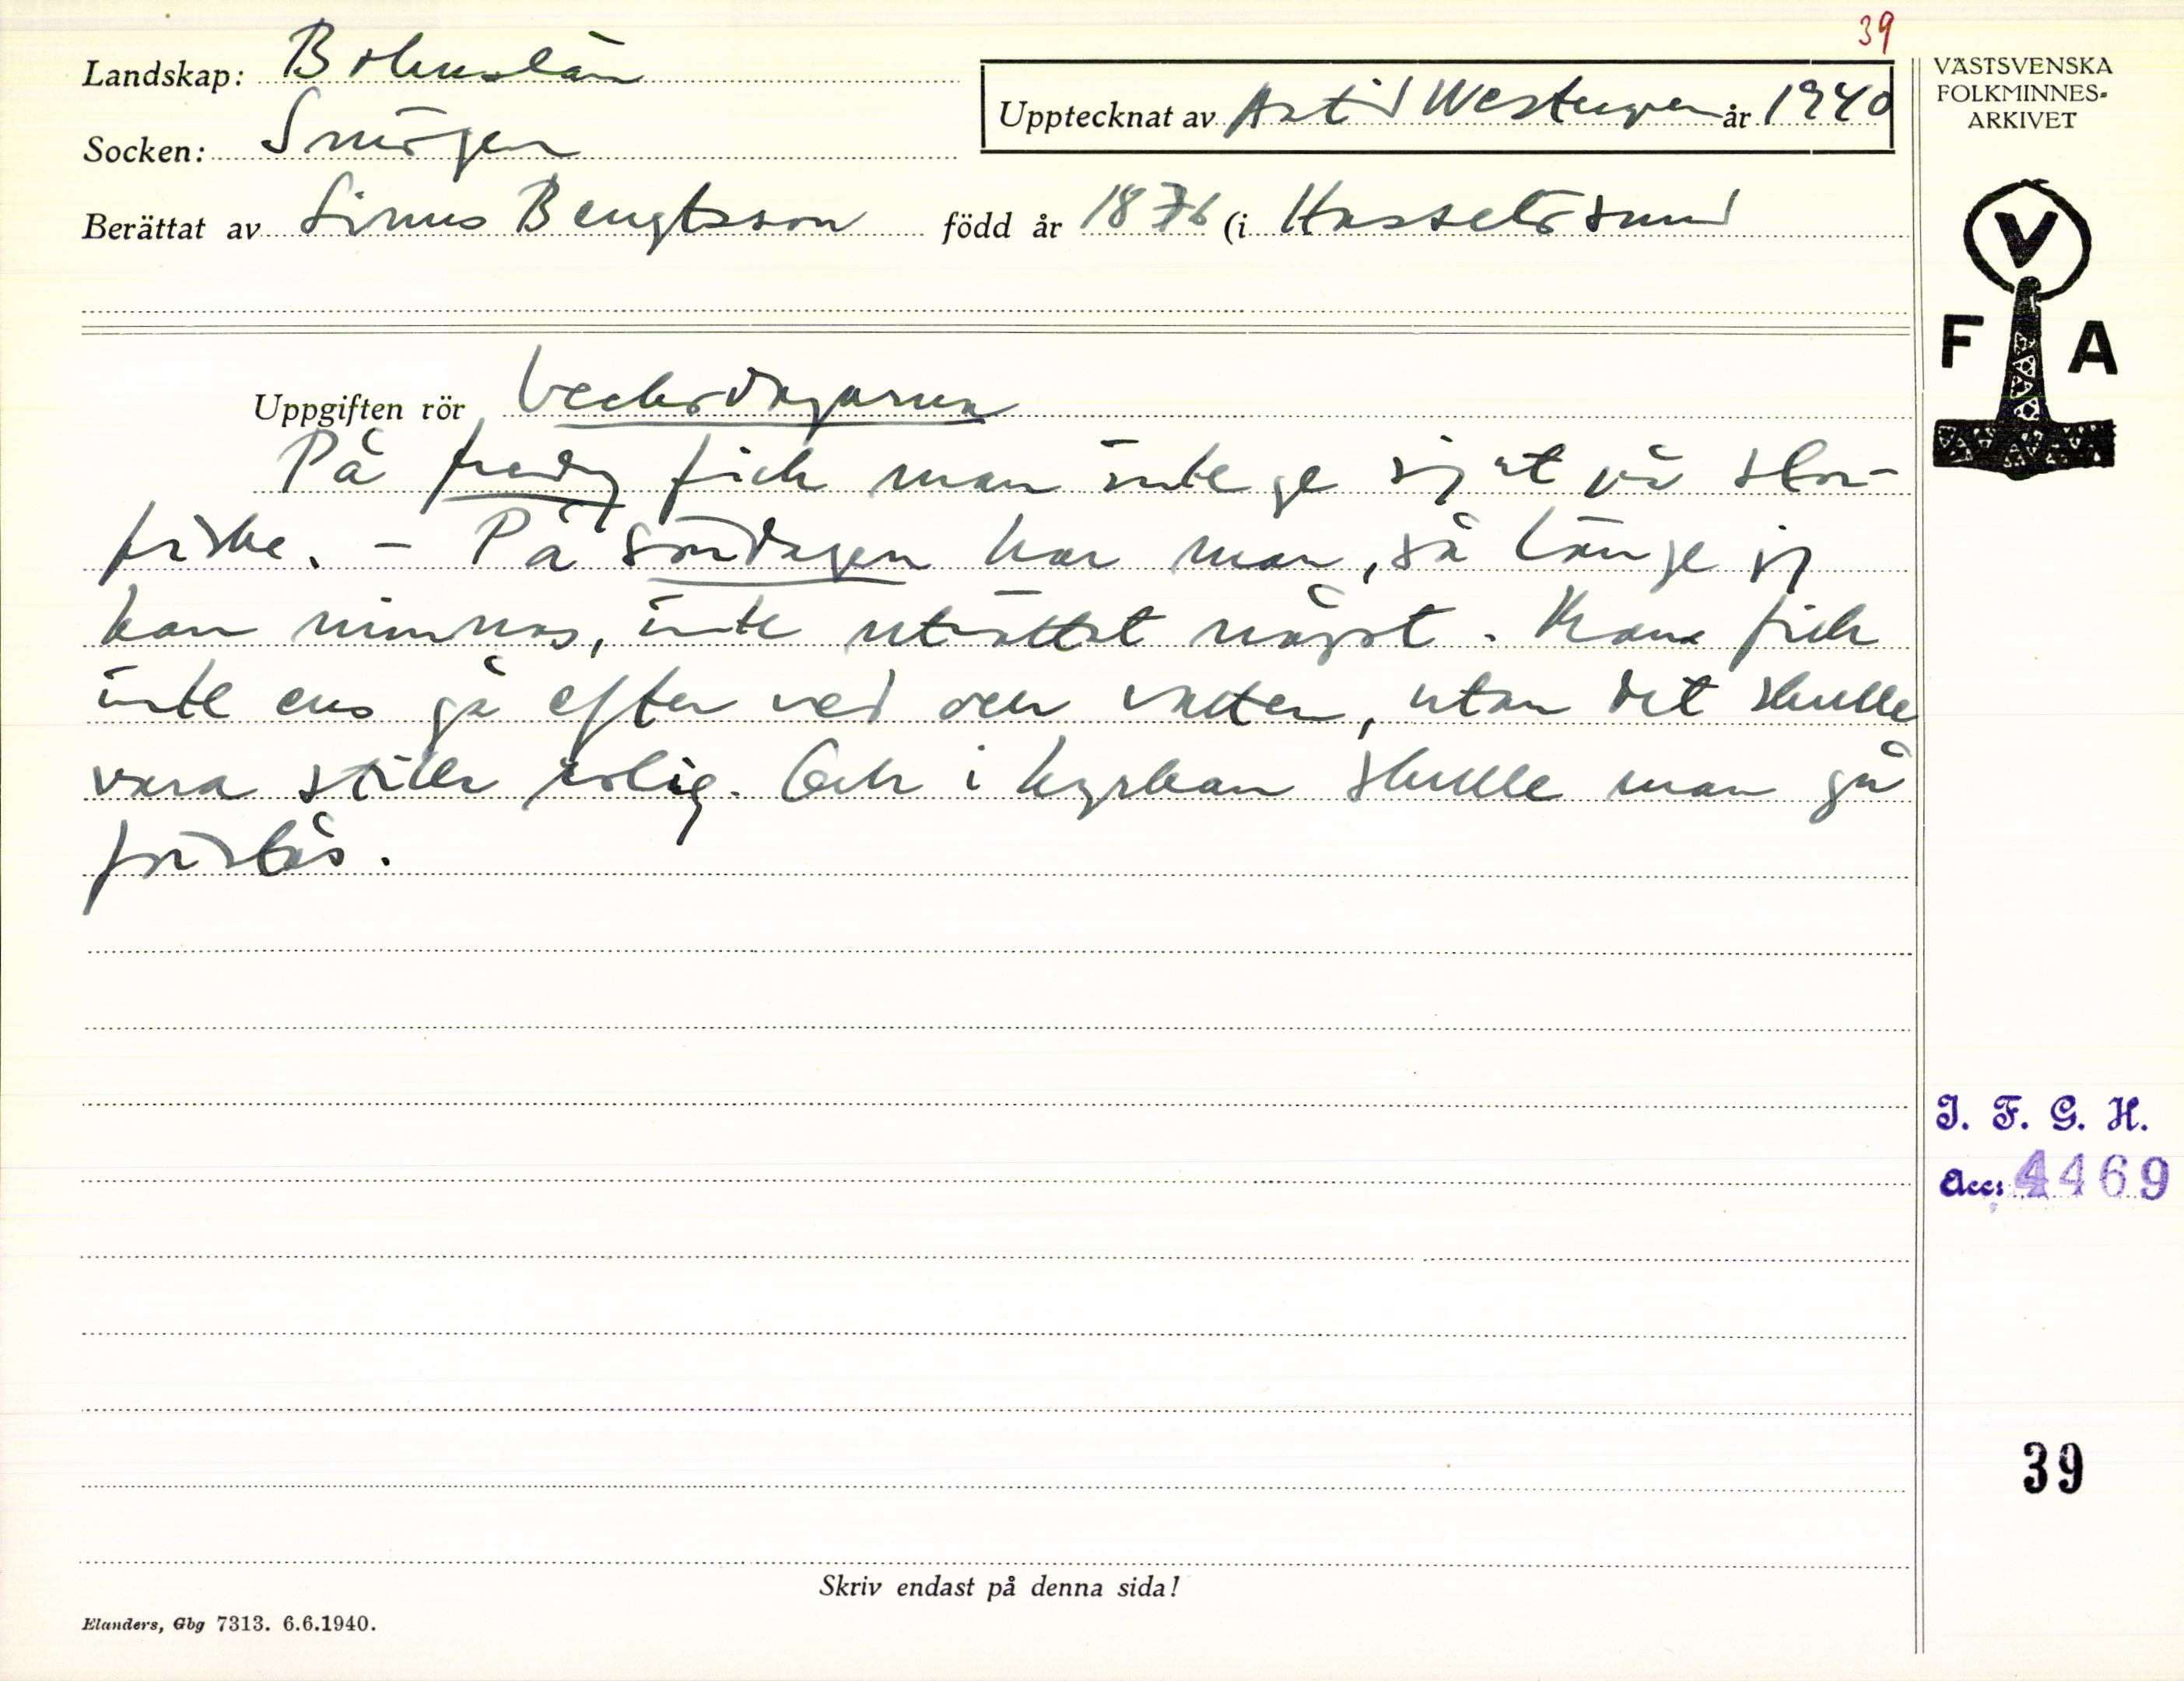 39
Landskap: Bohuslän
Socken: Smögen
Upptecknat av Astrid Westergren år 1940
Berättat av Linus Bengtsson född år 1876 (i Hasselösund
VÄSTSVENSKA
FOLKMINNES-
ARKIVET
V
F A
Uppgiften rör Veckodagarna
På fredag fick man inte ge sig ut på stor-
fiske. – På söndagen har man, så länge jag
kan minnas, inte uträttat något. Man fick
inte ens gå efter ved och vatten, utan det skulle
vara stilla rolig. Och i kyrkan skulle man gå
förstås.
I. F. G. H.
Acc: 4469
39
Skriv endast på denna sida!
Elanders, Gbg 7313. 6.6.1940.